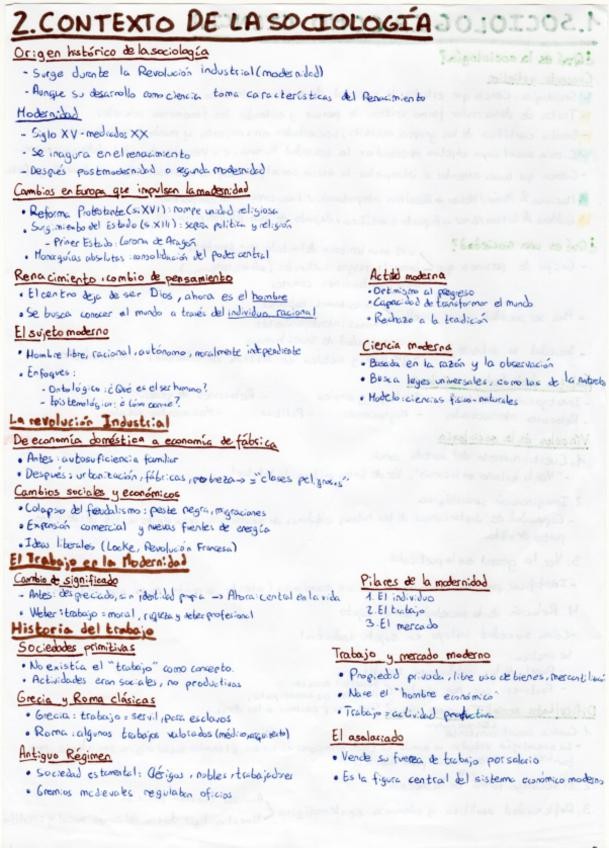 2. CONTEXTO DE LA SOCIOLOGÍA
Origen histórico de la sociología
- Surge durante la Revolución industrial (modernidad)
- Aunque su desarrollo como ciencia toma características del Renacimiento
Modernidad
- Siglo XV - mediados XX
- Se inagura en el renacimiento
- Después postmodernidad o segunda modernidad
Cambios en Europa que impulsen la modernidad
• Reforma Protestante (s.XVI): rompe unidad religiosa
• Surgimiento del Estado (s.XIII): separa política y religión
- Primer Estado: Corona de Aragón
• Monarquías absolutas: consolidación del poder central
Renacimiento: cambio de pensamiento
• El centro deja de ser Dios, ahora es el hombre
• Se busca conocer el mundo a través del individuo racional
Actitud moderna
• Optimismo al progreso
• Capacidad de transformar el mundo
• Rechazo a la tradición
El sujeto moderno
• Hombre libre, racional, autónomo, moralmente independiente
• Enfoques:
- Ontológico: ¿Qué es el ser humano?
- Epistemológico: ¿Cómo conoce?
Ciencia moderna
• Basada en la razón y la observación
• Busca leyes universales, como las de la naturaleza
• Modelo: ciencias físico-naturales
La revolución Industrial
De economía doméstica a economía de fábrica
• Antes: autosuficiencia familiar
• Después: urbanización, fábricas, pobreza → "clases peligrosas"
Cambios sociales y económicos
• Colapso del feudalismo: peste negra, migraciones
• Expansión comercial y nuevas fuentes de energía
• Ideas liberales (Locke, Revolución Francesa)
El Trabajo en la Modernidad
Cambio de significado
- Antes: despreciado, sin identidad propia → Ahora: central en la vida
• Weber: trabajo = moral, riqueza y deber profesional
Pilares de la modernidad
1. El individuo
2. El trabajo
3. El mercado
Historia del trabajo
Sociedades primitivas
• No existía el "trabajo" como concepto.
• Actividades eran sociales, no productivas
Grecia y Roma clásicas
• Grecia: trabajo = servil, para esclavos
• Roma: algunos trabajos valorados (médico, arquitecto)
Antiguo Régimen
• Sociedad estamental: Clérigos, nobles, trabajadores
• Gremios medievales regulaban oficios
Trabajo y mercado moderno
• Propiedad privada, libre uso de bienes, mercantilización
• Nace el "hombre económico"
• Trabajo = actividad productiva
El asalariado
• Vende su fuerza de trabajo por salario
• Es la figura central del sistema económico moderno